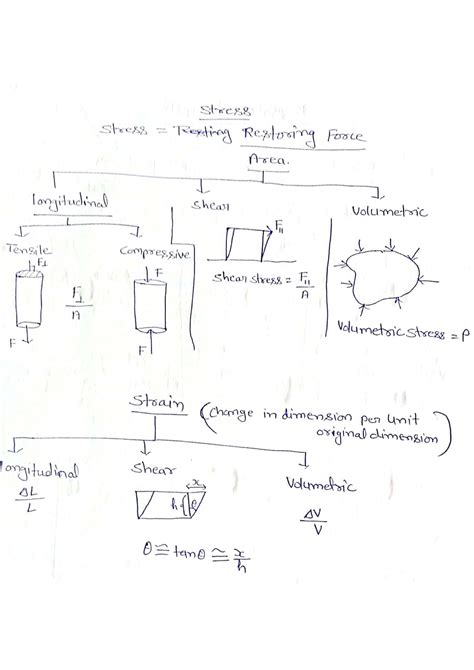 Stress
Stress = Restoring Force
Area.
Longitudinal
Shear
Volumetric
Tensile
Compressive
F⊥
F
F⊥
A
F
F
F||
Shear stress = F||
A
Volumetric Stress = P
Strain (change in dimension per unit
original dimension)
Longitudinal
Shear
Volumetric
ΔL
L
x
h
θ
ΔV
V
θ ≅ tanθ ≅ x
h